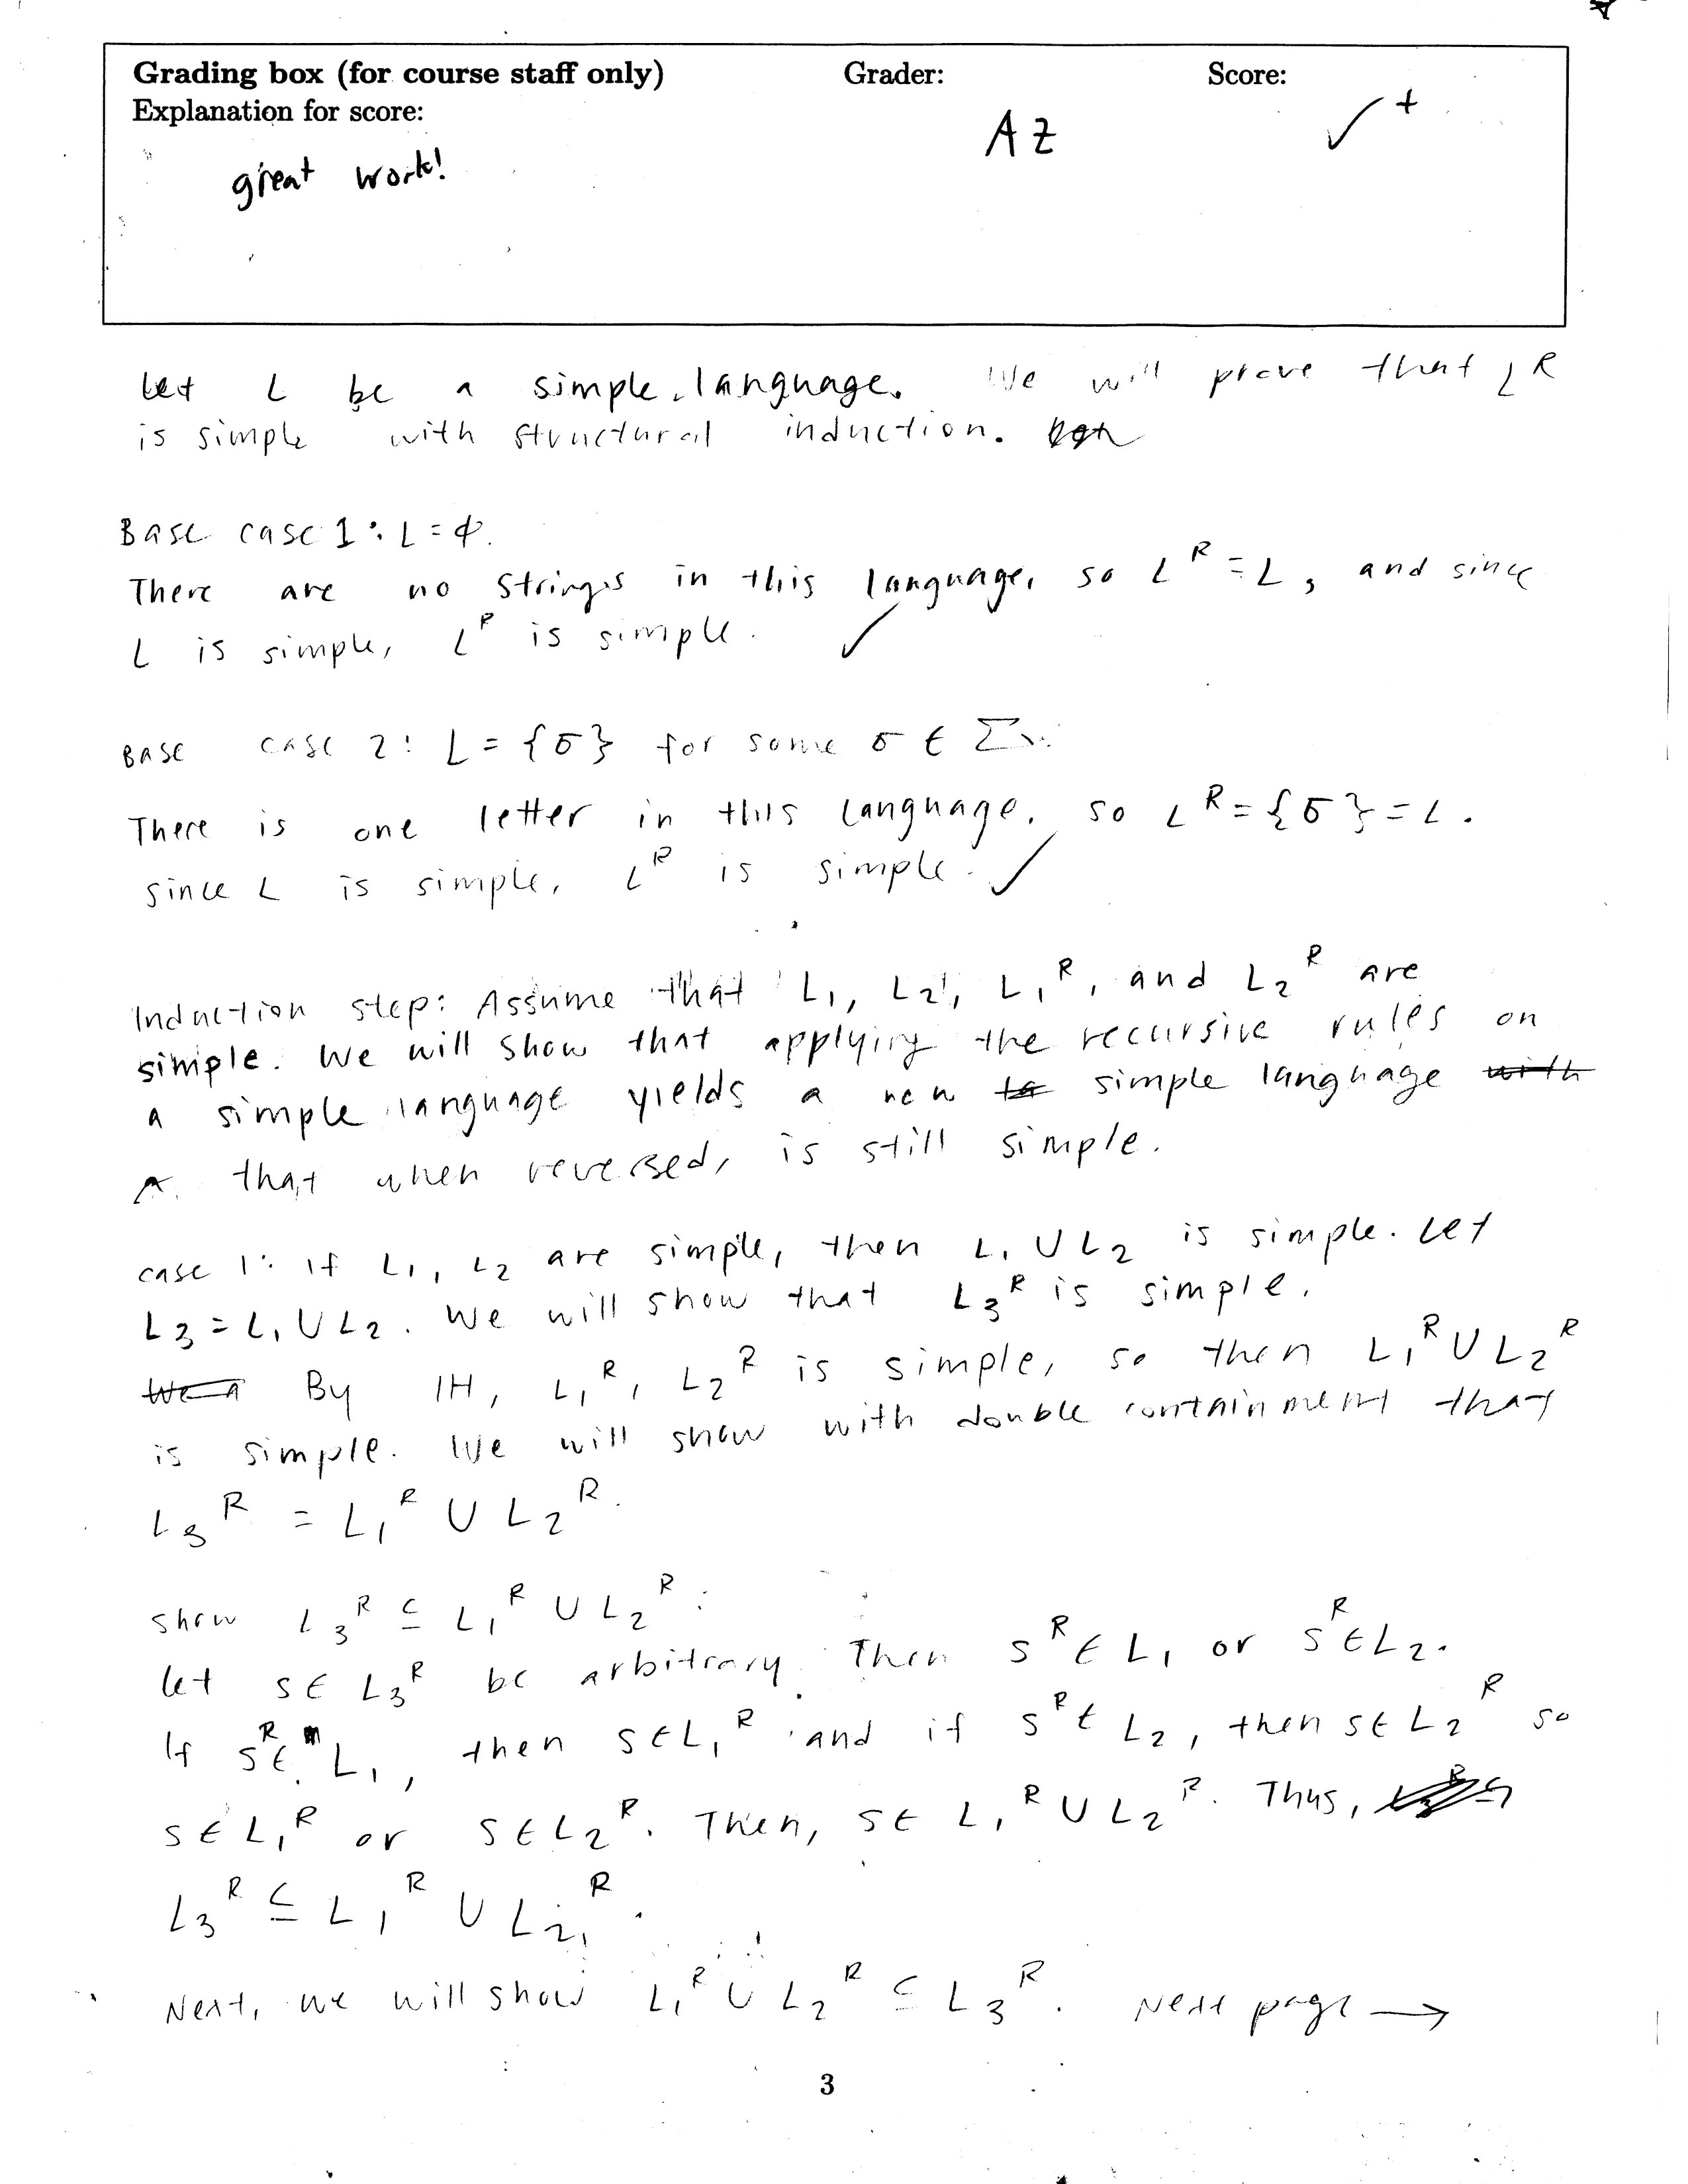 Grading box (for course staff only) Grader: Score:
Explanation for score:
AZ ✓+
great work!
Let L be a simple language. We will prove that L^R
is simple with structural induction.
Base case 1: L = ϕ.
There are no strings in this language, so L^R = L, and since
L is simple, L^R is simple. ✓
Base case 2: L = {σ} for some σ ∈ Σ.
There is one letter in this language, so L^R = {σ} = L.
since L is simple, L^R is simple. ✓
Induction step: Assume that L₁, L₂, L₁^R, and L₂^R are
simple. We will show that applying the recursive rules on
a simple language yields a new simple language with
that when reversed, is still simple.
case 1: if L₁, L₂ are simple, then L₁ ∪ L₂ is simple. Let
L₃ = L₁ ∪ L₂. We will show that L₃^R is simple.
By IH, L₁^R, L₂^R is simple, so then L₁^R ∪ L₂^R
is simple. We will show with double containment that
L₃^R = L₁^R ∪ L₂^R.
Show L₃^R ⊆ L₁^R ∪ L₂^R:
Let s ∈ L₃^R be arbitrary. Then s^R ∈ L₁ or s^R ∈ L₂.
If s^R ∈ L₁, then s ∈ L₁^R and if s^R ∈ L₂, then s ∈ L₂^R so
s ∈ L₁^R or s ∈ L₂^R. Then, s ∈ L₁^R ∪ L₂^R. Thus,
L₃^R ⊆ L₁^R ∪ L₂^R.
Next, we will show L₁^R ∪ L₂^R ⊆ L₃^R. Next page →
3